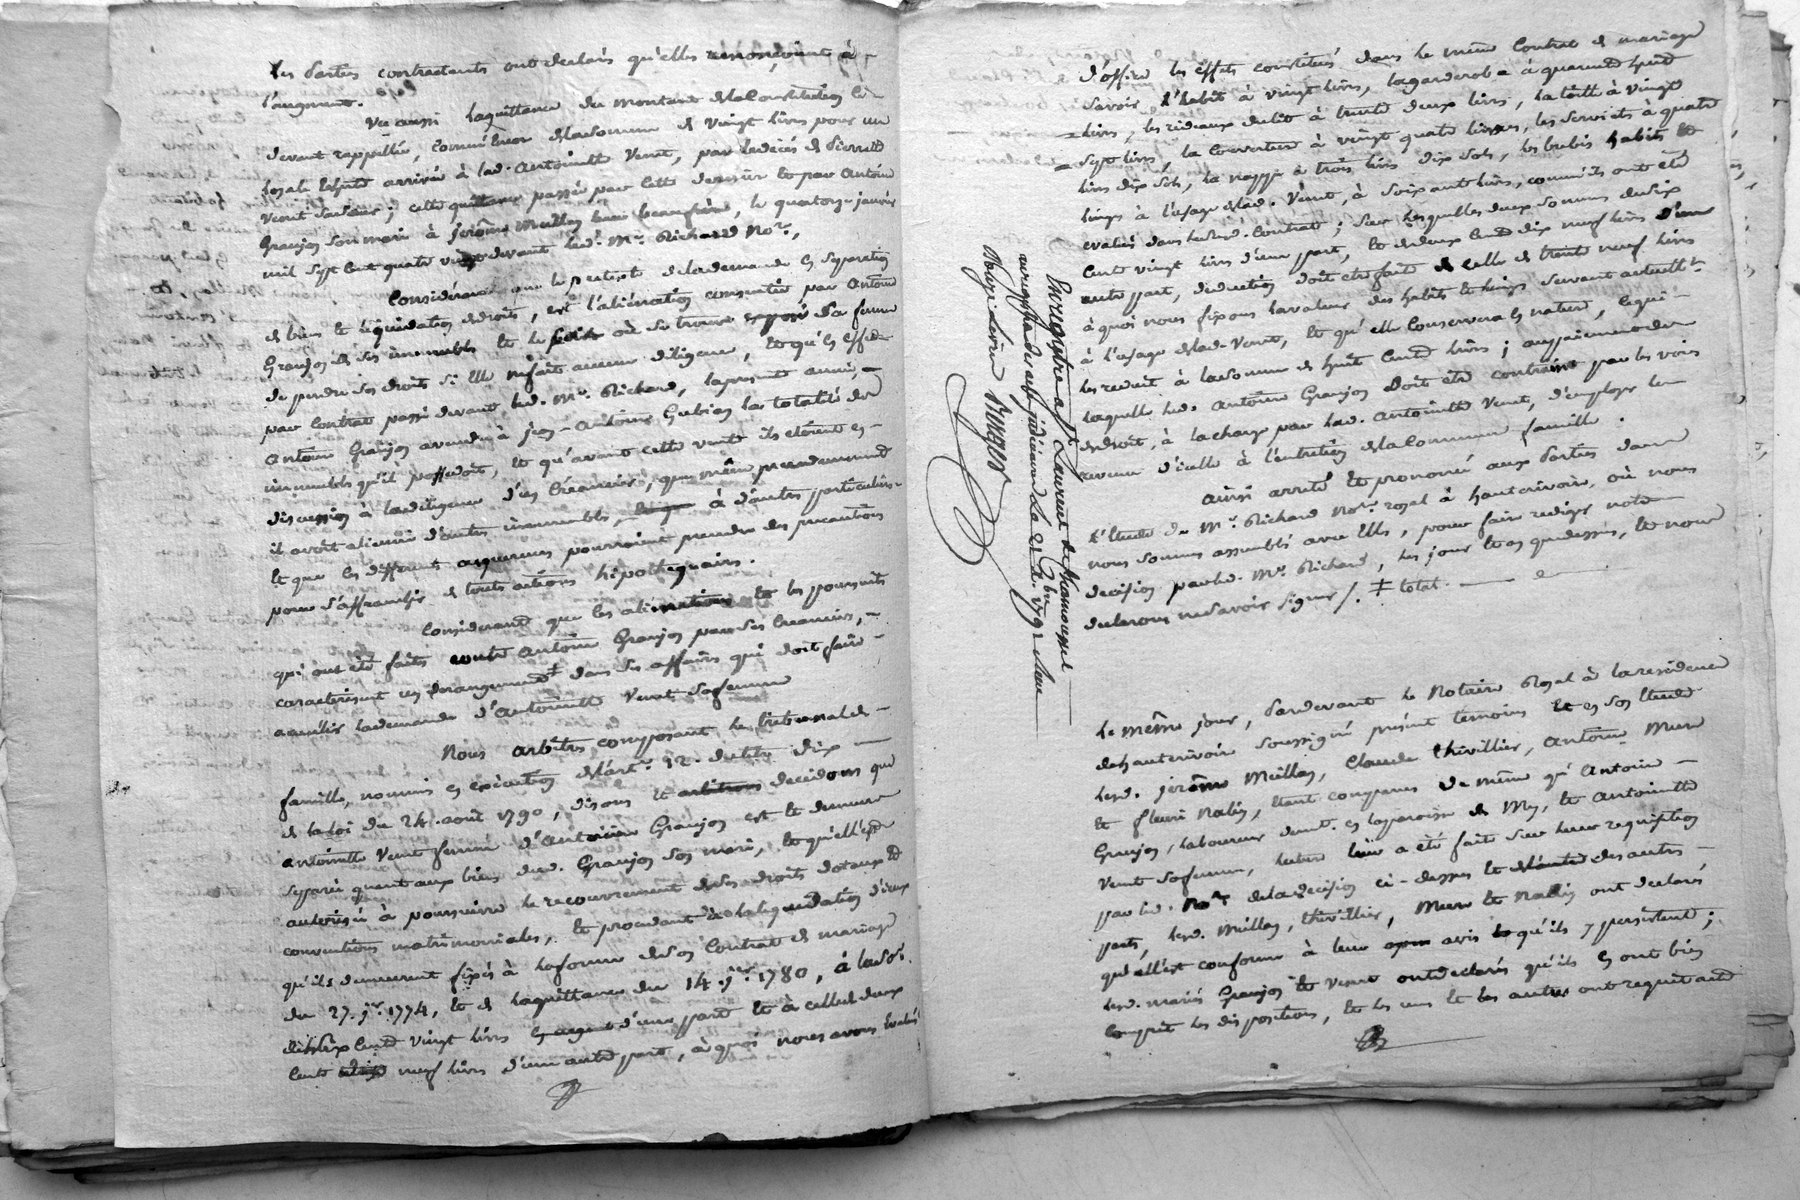 les parties contractants ont declarés qu'elles renonçoient à
l'augment.
Vu aussi la quittance du montant de la Constitution ci
devant rappellée, comme encor de la somme de vingt livres pour un
legale echute arrivée à lad. antoinette Venet, par le decès de pierre
Venet ; cette quittance passée par cette derniere et par antoine
Granjon son mari à jerôme Meillan beau frère, le quatorze janvier
mil sept cent quatre vingt devant led. Mr. Richard Nore.,
Considérant que le pretexte de la demande en separation
de biens et liquidation de droits, est l'aliénation consentie par antoine
Granjon de ses immeubles et le peril où se trouve exposé sa femme
de perdre ses droits si elle ne fait aucune diligence, et qu'en effet
par contrat passé devant led. Mr. Richard, la presente année,
antoine Granjon a vendu à jean-antoine Gubian la totalité des
immeubles qu'il possedoit, et qu'avant cette vente ils etoient en
discussion à la diligence d'un Créancier, que même precedemment
il avoit aliené d'autres immeubles, à d'autres particuliers
et que les differents acquereurs pourroient prendre des precautions
pour s'affranchir de toutes actions hipothequaires.
Considerant que les alienations et les poursuites
qui ont été faites contre antoine Granjon par ses Creanciers,
caracterisent un derangement ‡ dans ses affaires qui doit faire
accueillir la demande d'antoinette Venet sa femme
Nous arbitres composant le tribunal de
famille, nommés en execution de l'art. 12. du titre dix
de la loi du 24. août 1790, disons et decidons que
antoinette Venet femme d'antoine Granjon est et demeure
separée quant aux biens dud. Granjon son mari, et qu'elle est
autorisée à poursuivre le recouvrement de ses droits dotaux et
conventions matrimoniales, et procedant à la liquidation d'iceux
qu'ils demeurent fixés à la forme de son Contrat de mariage
du 27. jer. 1774, et de la quittance du 14. jer. 1780, à la so.
de six Cent vingt livres en argent d'une part et à celle de deux
Cent neuf livres d'une autre part, à quoi nous avons évalué
d'office les effets constitués dans le même Contrat de mariage
savoir, l'habit à vingt livres, la garderobe à quarante huit
livres, les rideaux de lit à trente deux livres, la toille à vingt
sept livres, la Couverture à vingt quatre livres, les serviets à quatre
livres dix sols, la nappe à trois livres dix sols, les brebis habits et
linges à l'usage de lad. Venet, à soixante livres, comme ils ont été
evalués dans le susd. Contrat ; sur lesquelles deux sommes de six
Cent vingt livres d'une part, et de deux Cent dix neuf livres d'une
autre part, deduction doit etre faite de celle de trente neuf livres
à quoi nous fixons la valeur des habits et linges servant actuellt.
à l'usage de lad. Venet, et qu'elle Conservera en nature, ce qui
les reduit à la somme de huit Cent livres ; au paiement de
laquelle led. antoine Granjon doit etre contraint par les voies
de droit, à la charge par lad. antoinette Venet, d'employer le
revenu d'icelle à l'entretien de la Commune famille.
ainsi arreté et prononcé aux parties dans
l'etude de Mr. Richard Nore. royal à hauterivoire, où nous
nous sommes assemblés avec elles, pour faire rediger notre
decision par led. Mr. Richard, les jour et an que dessus, et nous
declarons ne savoir signer /. ‡ total.
Enregistré a St Laurent de Chamousset
au registre des actes judiciaires Le 21. 9bre 1791
Reçu
le même jour, pardevant le Notaire Royal à la residence
de hauterivoire soussigné présent temoins et en son etude
lesd. jerôme Meillan, Claude thivillier, antoine Mure
et fleuri Nalin, etant comparus de même qu'antoine
Granjon, laboureur demt. en la paroisse de Mey, et antoinette
Venet sa femme, lecture leur a été faite sur leur requisition
par led. Nore. de la decision ci-dessus et des autres
parts, lesd. Meillan, thivillier, Mure et Nalin ont declarés
qu'elle est conforme à leur avis et qu'ils y persistent ;
lesd. mariés Granjon et Venet ont declarés qu'ils en ont bien
Compris les dispositions, et les uns et les autres ont requit acte